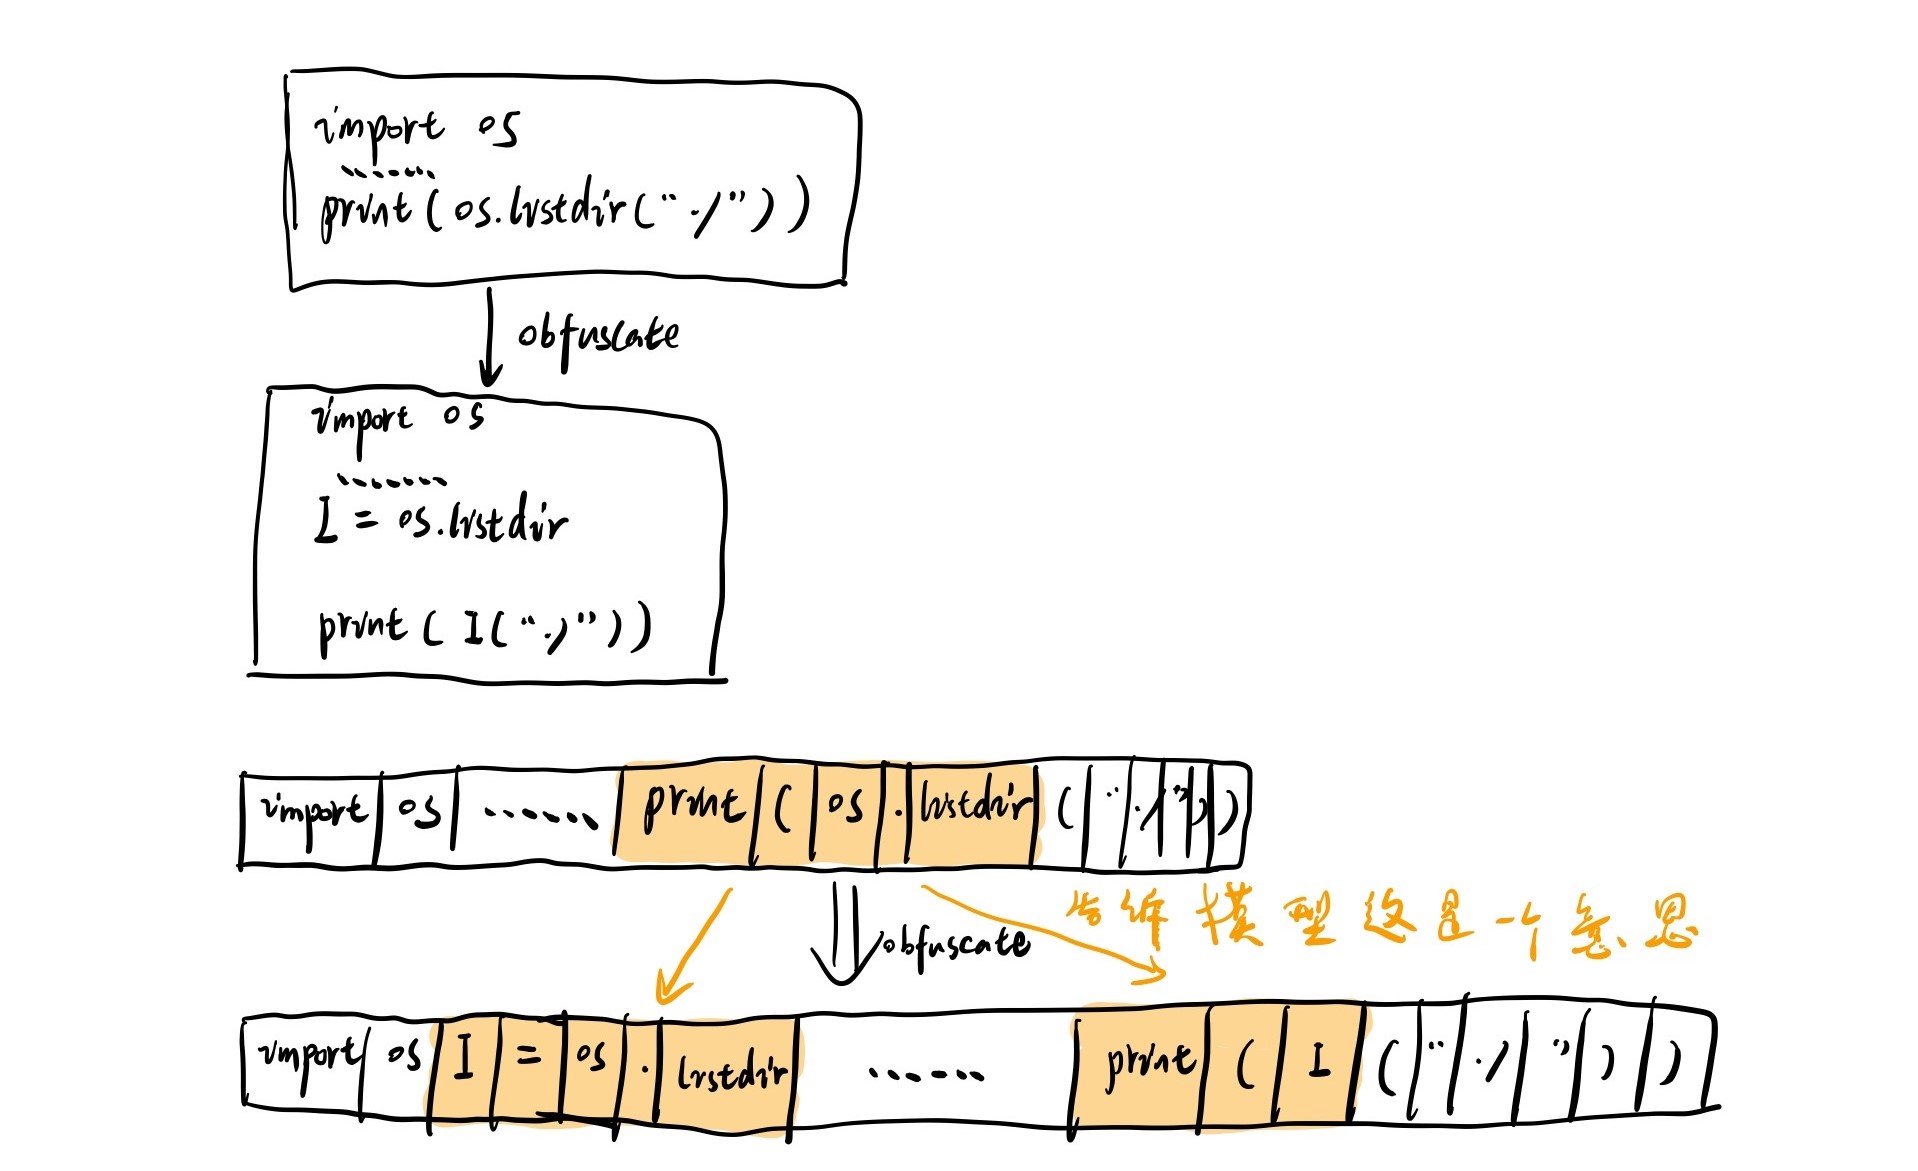 import os
.......
print(os.listdir("./"))
obfuscate
import os
.......
I = os.listdir
print(I("./"))
import os ...... print ( os . listdir ( " ./ " ) )
告诉模型这是一个意思
obfuscate
import os I = os . listdir ...... print ( I ( " ./ " ) )